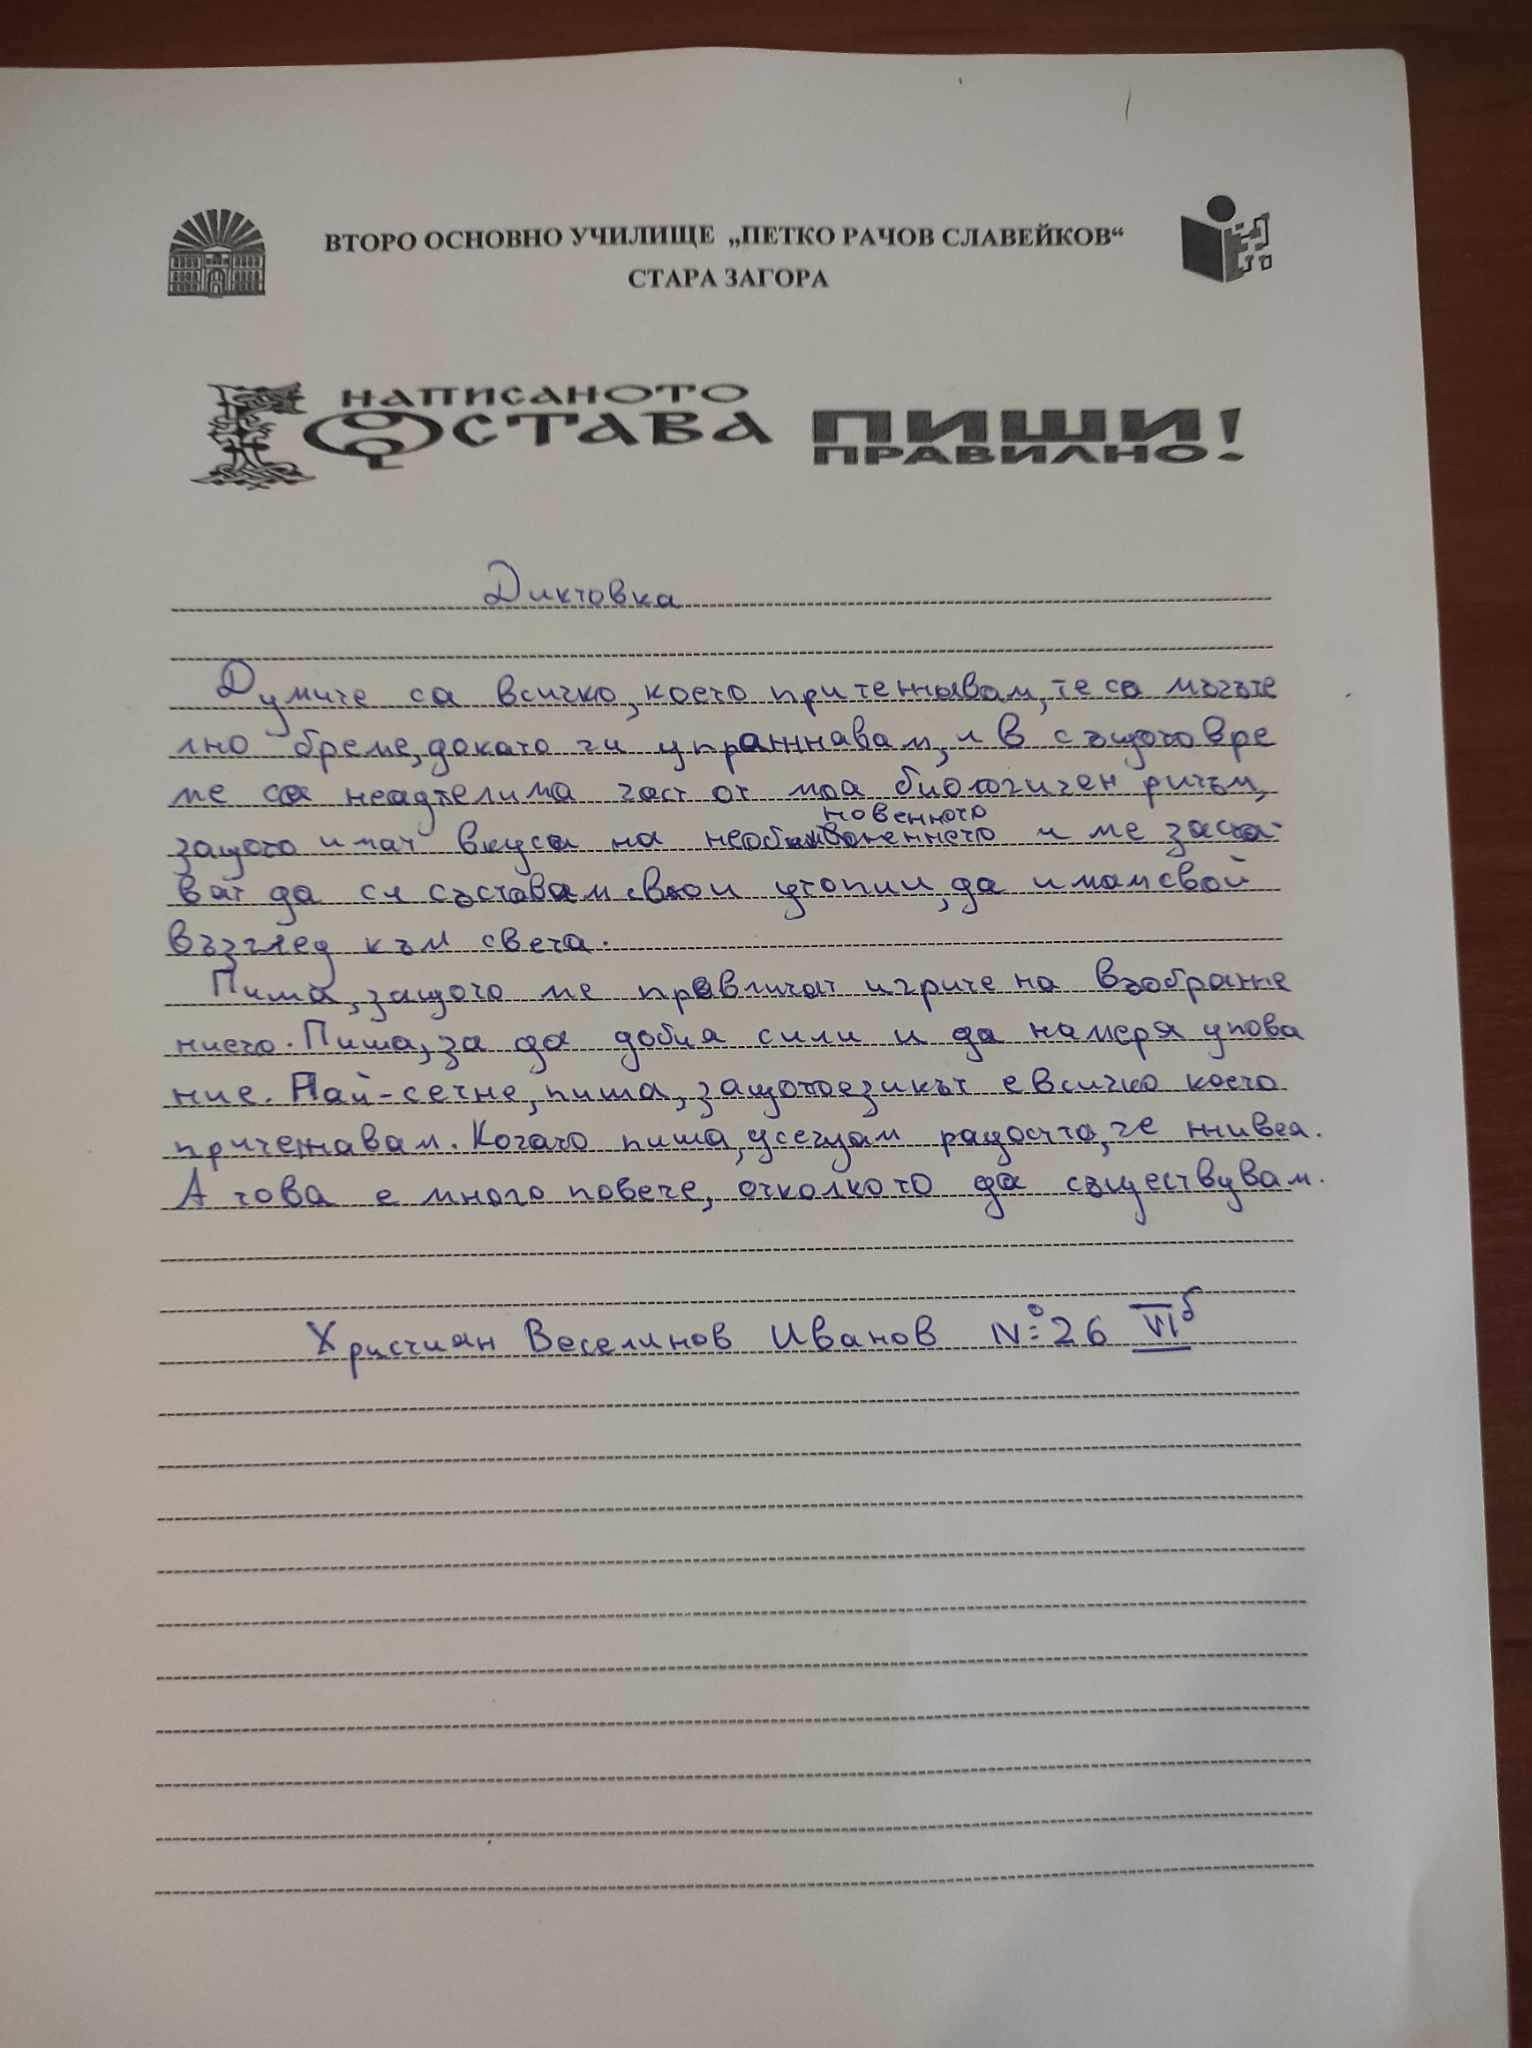 ВТОРО ОСНОВНО УЧИЛИЩЕ „ПЕТКО РАЧОВ СЛАВЕЙКОВ“
СТАРА ЗАГОРА
НАПИСАНОТО
ОСТАВА
ПИШИ!
ПРАВИЛНО
Диктовка
Думите са всичко, което притежъвам, те са мъчъте
лно бреме, докато ги упражнавам, и в същото вре
ме са неадтелима част от моа биологичен ритъм,
новенното
защото имат вкуса на и ме заста-
ват да си съставам свои утопии, да имам свой
възглед към света.
Пиша, защото ме превличат игрите на въображе
нието. Пиша, за да добия сили и да намеря упова
ние. Най-сетне, пиша, защото езикът е всичко което
притежавам. Когато пиша, усещам радостта, че живеа.
А това е много повече, отколкото да съществувам.
Християн Веселинов Иванов №26 VI б